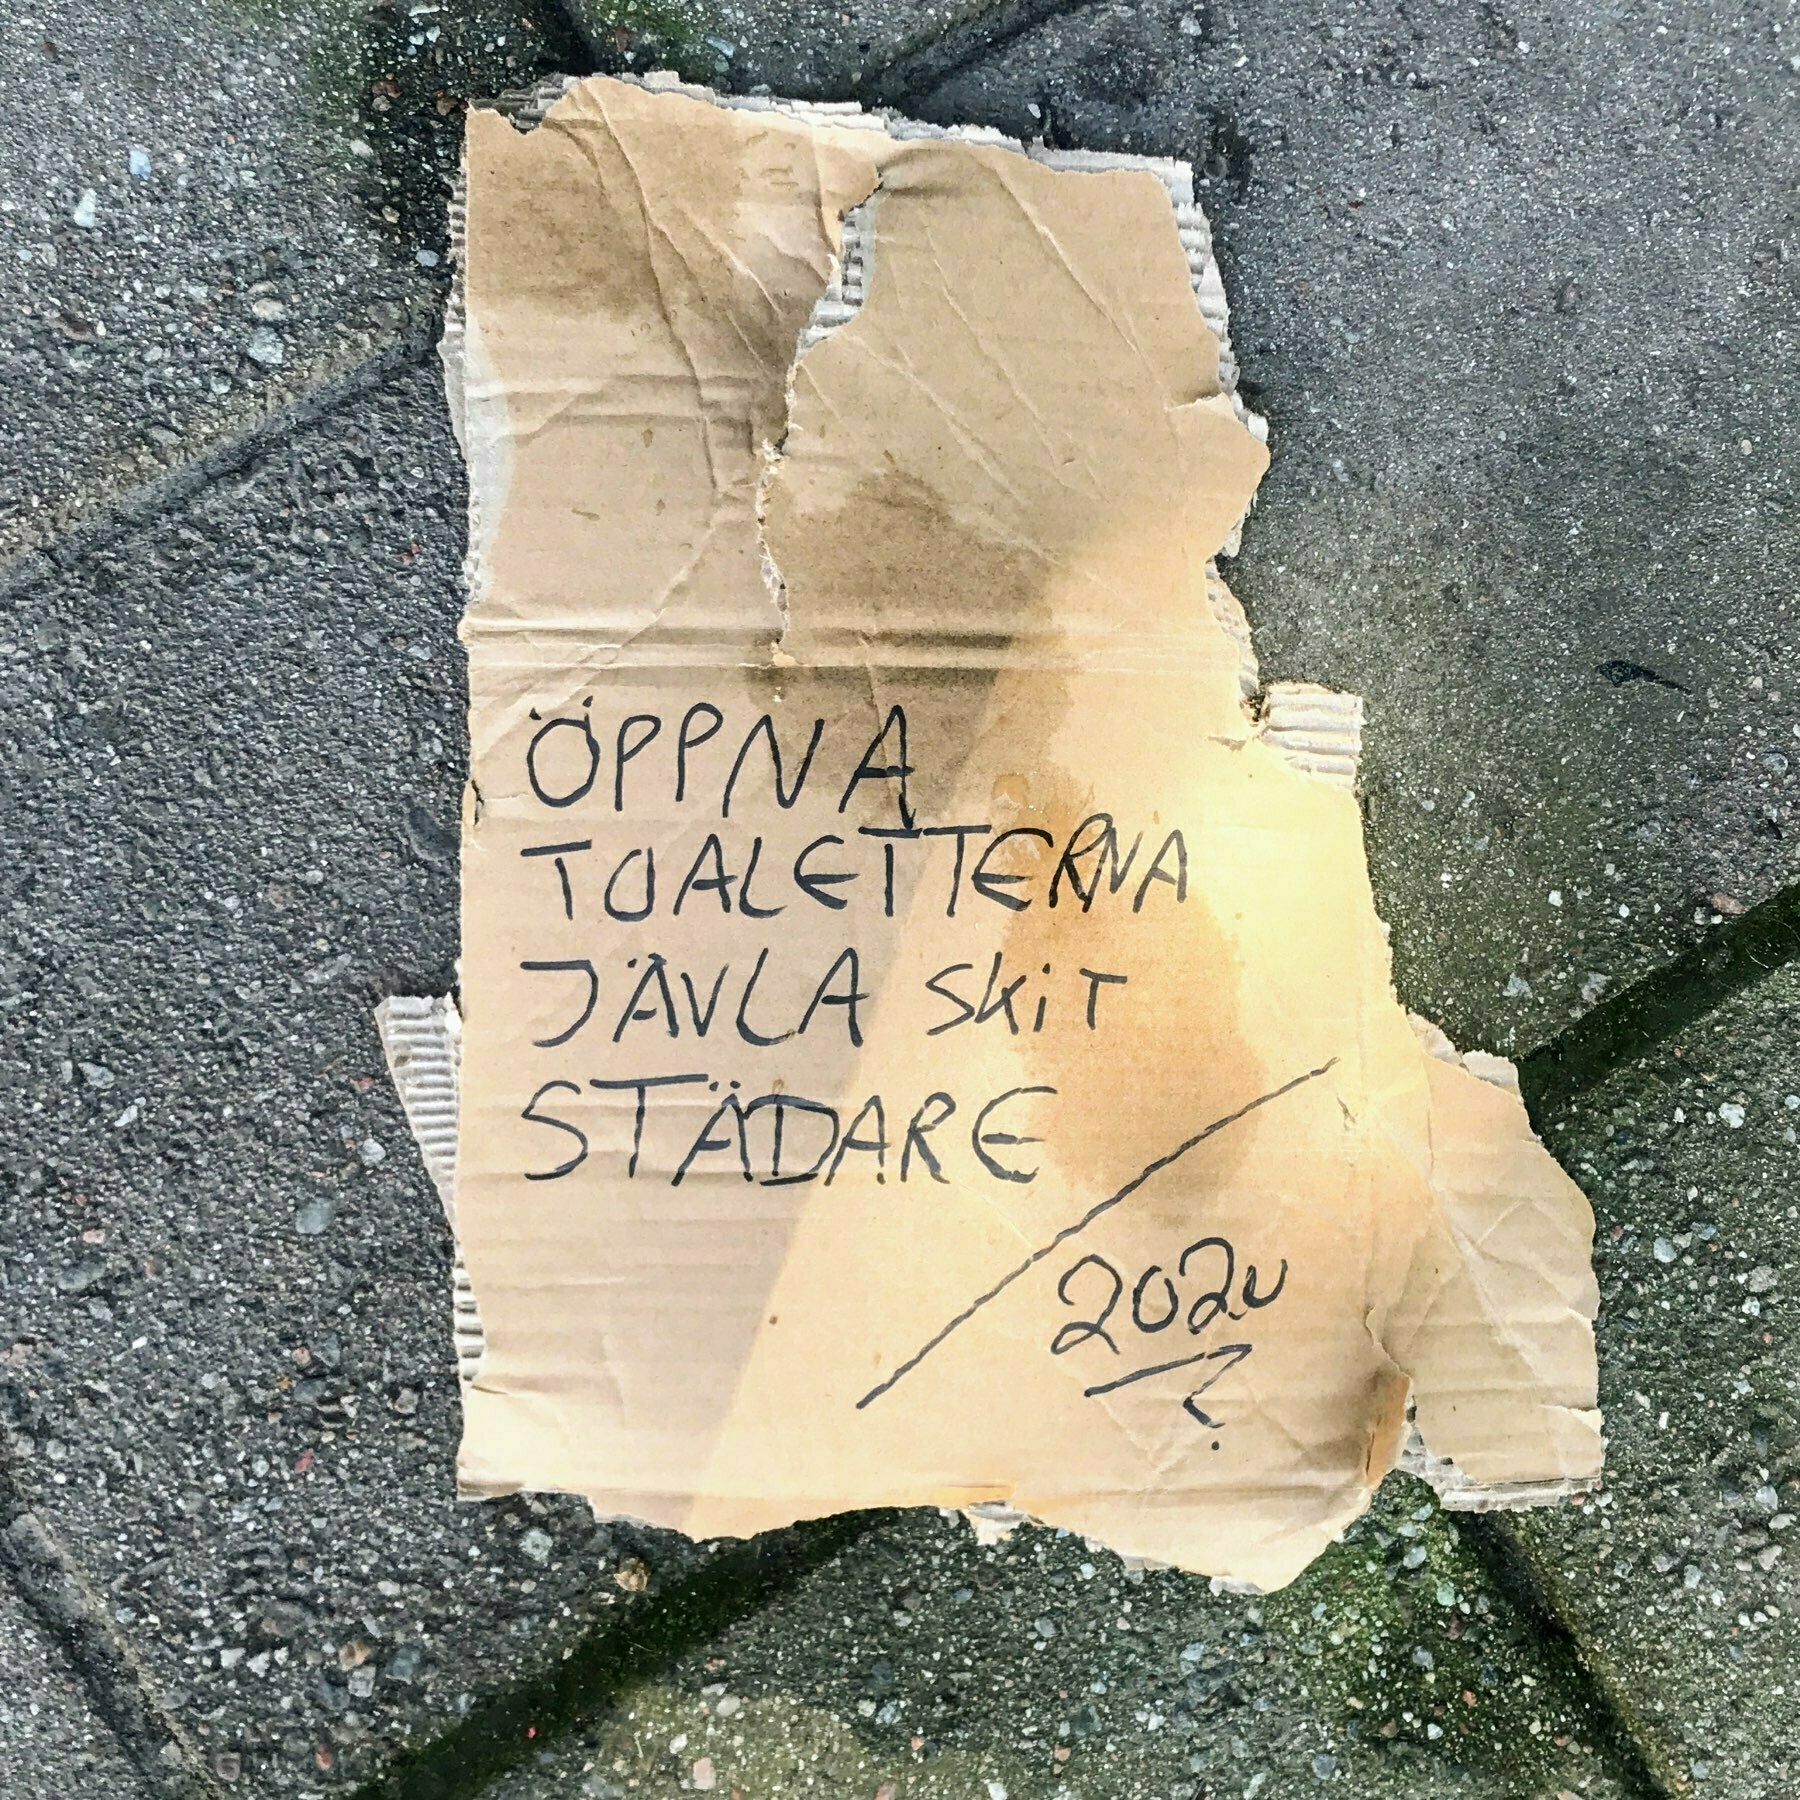 ÖPPNA
TOALETTERNA
JÄVLA SKiT
STÄDARE
2020
?